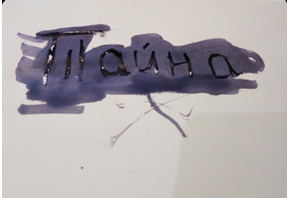 Тайна